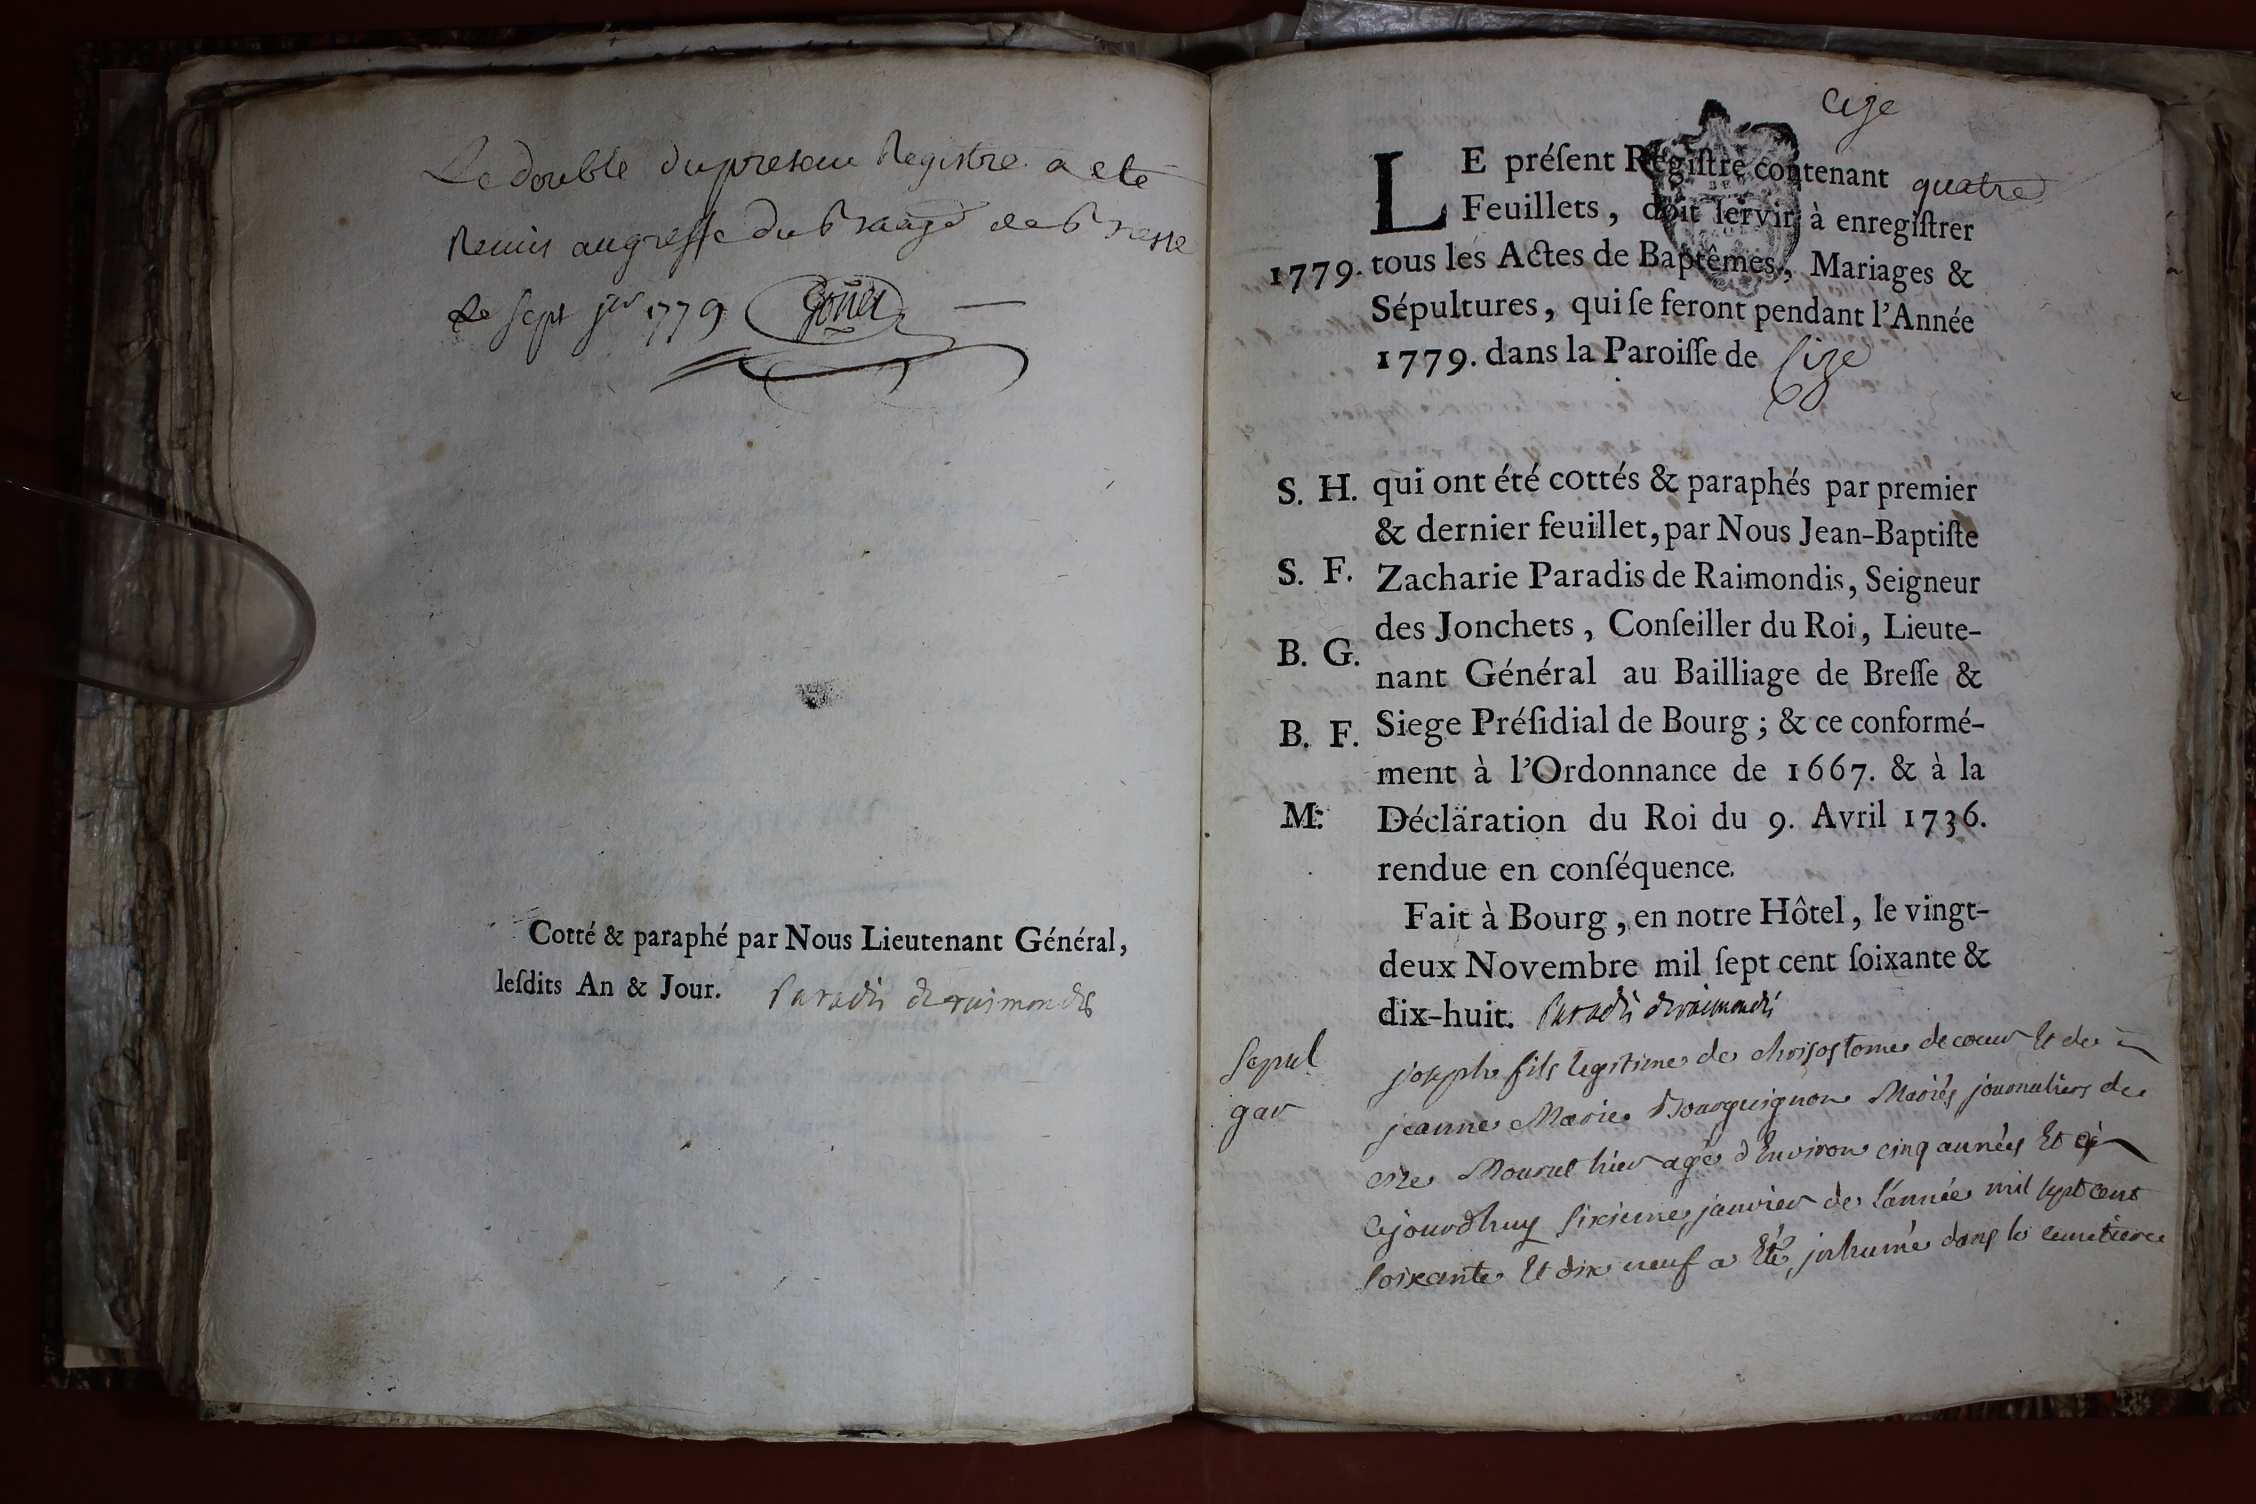 Le double du present Registre a ete
Remis au greffe du Bailliage de Bresse
le sept jer 1779
Cotté & paraphé par Nous Lieutenant Général,
leſdits An & Jour. Paradis de raimondis
Cize
LE préſent Régiſtre contenant quatre
Feuillets, doit ſervir à enregiſtrer
1779. tous les Actes de Baptêmes, Mariages &
Sépultures, qui ſe feront pendant l'Année
1779. dans la Paroiſſe de Cize
S. H. qui ont été cottés & paraphés par premier
& dernier feuillet, par Nous Jean-Baptiſte
S. F. Zacharie Paradis de Raimondis, Seigneur
des Jonchets, Conſeiller du Roi, Lieute-
B. G. nant Général au Bailliage de Breſſe &
B. F. Siege Préſidial de Bourg; & ce conformé-
ment à l'Ordonnance de 1667. & à la
M. Déclaration du Roi du 9. Avril 1736.
rendue en conſéquence.
Fait à Bourg, en notre Hôtel, le vingt-
deux Novembre mil ſept cent ſoixante &
dix-huit. Paradis de raimondis
Sepul joseph fils legitime de chrisostome decoeur Et de
gar jeanne Marie Bourguignon Mariés journaliers de
cize Mourut hier agé d'Environ cinq années Et
Cejourdhuy sixieme janvier de l'année mil sept cent
soixante Et dix neuf a Eté inhumé dans le cimetiere